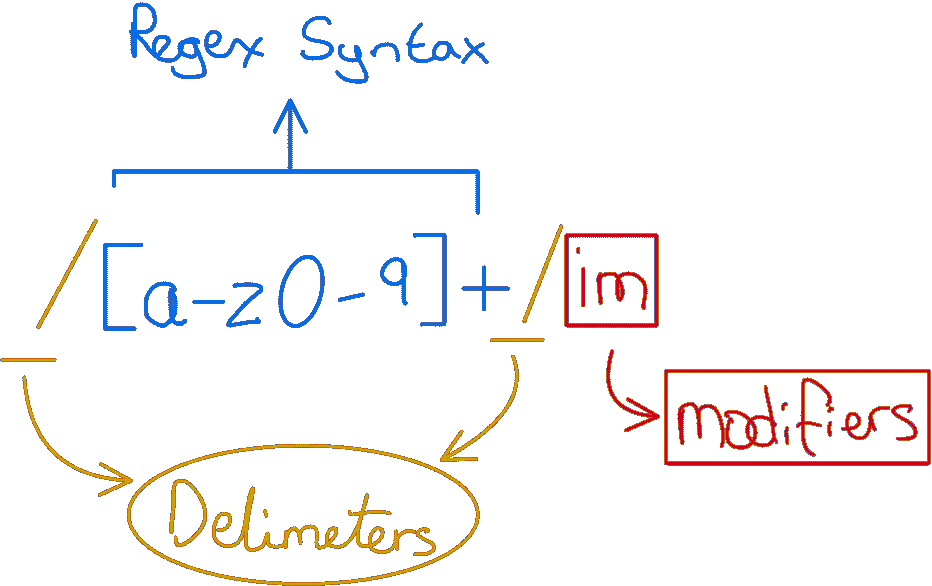 Regex Syntax
/[a-z0-9]+/im
modifiers
Delimeters